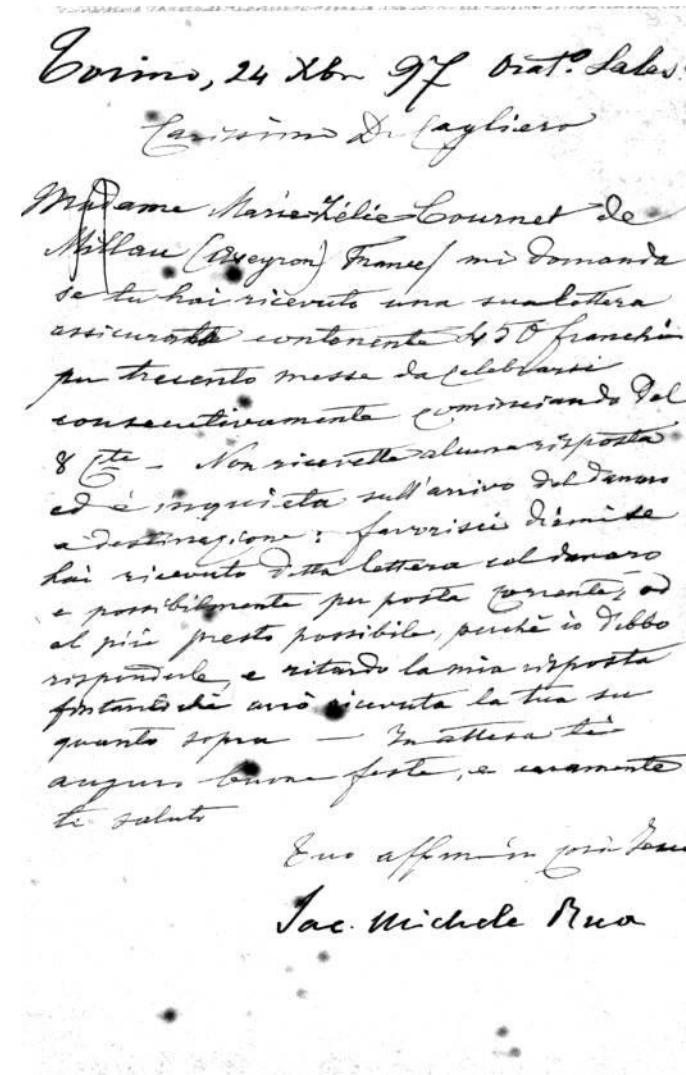 Torino, 24 Xbre 97 Orat.º Sales.
Carissimo D. Cagliero
Madame Marie Zélie Cournet de
Millau (Aveyron) France/ mi domanda
se tu hai ricevuto una sua lettera
assicurata contenente 450 franchi
per trecento messe da celebrarsi
consecutivamente cominciando dal
8 - Non ricevette alcuna risposta
ed è inquieta sull'arrivo del danaro
a destinazione: favorisci dirmi se
hai ricevuto detta lettera col danaro
e possibilmente per posta corrente, od
al più presto possibile, perchè io debbo
risponderle, e ritardo la mia risposta
fintantochè avrò ricevuta la tua su
quanto sopra — In attesa ti
auguro buone feste, e caramente
ti saluto
Tuo aff.mo in
Sac. Michele Rua